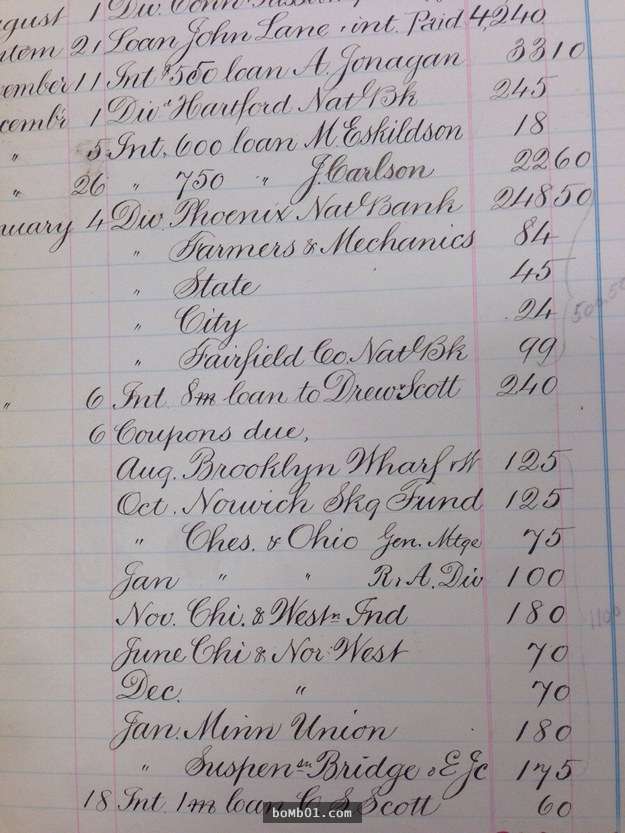 gust 1 Div. Conn
21 Loan John Lane int. Paid 4,240
ember 11 Int $550 loan A. Jonagan 33 10
cembr 1 Div " Hartford Natl Bk 245
" 5 Int. 600 loan M. Eskildson 18
" 26 " 750 " J. Carlson 22 60
nuary 4 Div. Phoenix Natl Bank 248 50
" Farmers & Mechanics 84
" State 45
" City 24
" Fairfield Co. Natl Bk 99
" 6 Int. 8m loan to Drew Scott 240
6 Coupons due,
Aug. Brooklyn Wharf 125
Oct. Norwich Skg Fund 125
" Ches. & Ohio Gen. Mtge 75
Jan " " R & A. Div 100
Nov. Chi. & Westn Ind 180
June Chi & Nor West 70
Dec. " 70
Jan. Minn Union 180
" Suspensn Bridge & E Jc 175
18 Int. 1m loan C. S. Scott 60
bomb01.com